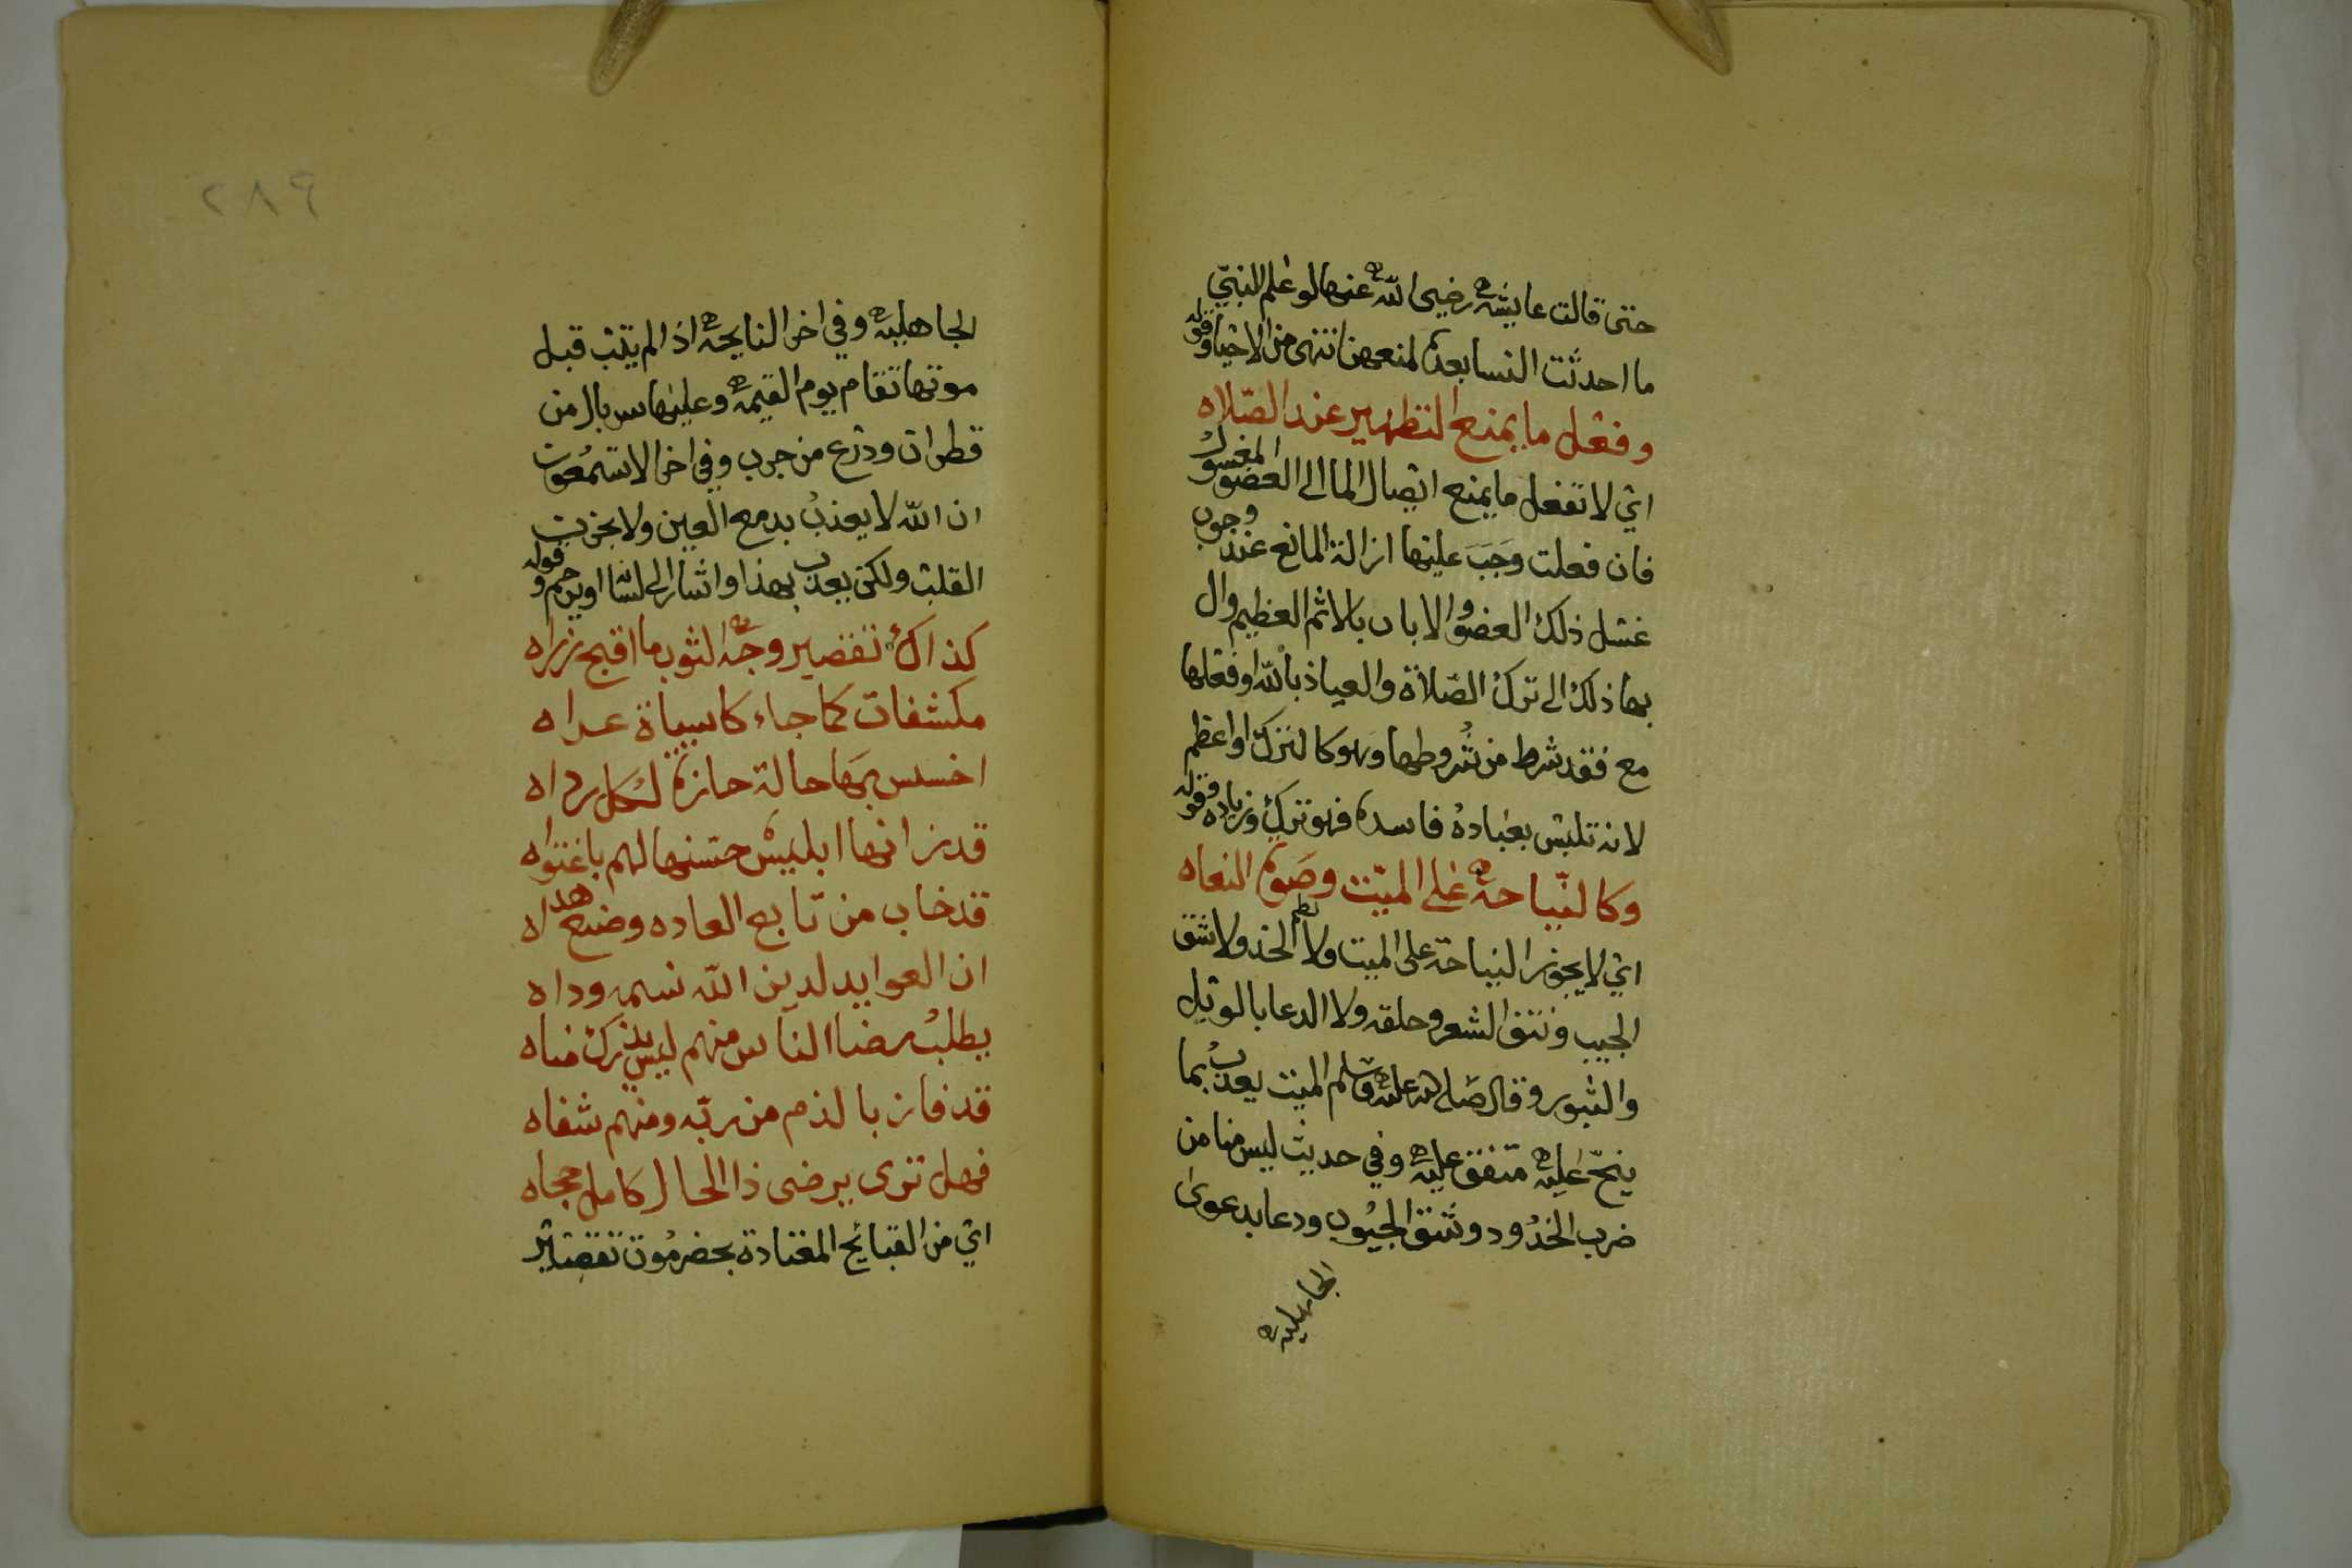 حتى قالت عايشه رضي الله عنها لو علم النبي
ما احدثت النسا بعده لمنعهن انتهى من الاحيا وقوله
وفعل ما يمنع التطهير عند الصلاه
اي لا تفعل ما يمنع ايصال الما الى العضو المغسول
فان فعلت وجب عليها ازالة المانع عند وجوب
غسل ذلك العضو والا بات بالاثم العظيم وال
بها ذلك الى ترك الصلاة والعياذ بالله او فعلها
مع فقد شرط من شروطها وهو كالترك او اعظم
لانه تلبس بعباده فاسده فهو ترك وزياده وقوله
وكالنياحه على الميت وصوم النعاه
اي لا يجوز النياحة على الميت ولا لطم الخد ولا شق
الجيب ونتف الشعر وحلقه ولا الدعا بالويل
والثبور وقال صلى الله عليه وسلم الميت يعذب بما
ينح عليه متفق عليه وفي حديث ليس منا من
ضرب الخدود وشق الجيوب ودعا بدعوى
الجاهليه
٢٨٩
الجاهليه وفي اخر النايحه اذا لم يتب قبل
موتها تقام يوم القيمه وعليها سربال من
قطران ودرع من جرب وفي اخر الا تسمعون
ان الله لا يعذب بدمع العين ولا بحزن
القلب ولكن يعذب بهذا واشار الى لسانه او يرحم وقوله
كذاك تقصير وجه الثوب ما اقبح زراه
مكشفات كما جاء كاسياة عراه
اخسس بها حالة حازة لكل رداه
قد زانها ابليس حسنها لهم باغتواه
قد خاب من تابع العاده وضيع هداه
ان العوايد لدين الله سم وداه
يطلب رضا الناس منهم ليس يدرك مناه
قد فاز بالذم من ربه ومنهم شفاه
فهل ترى يرضى ذا الحال كامل حجاه
اي من القبائح المعتادة بحضرموت تقصير